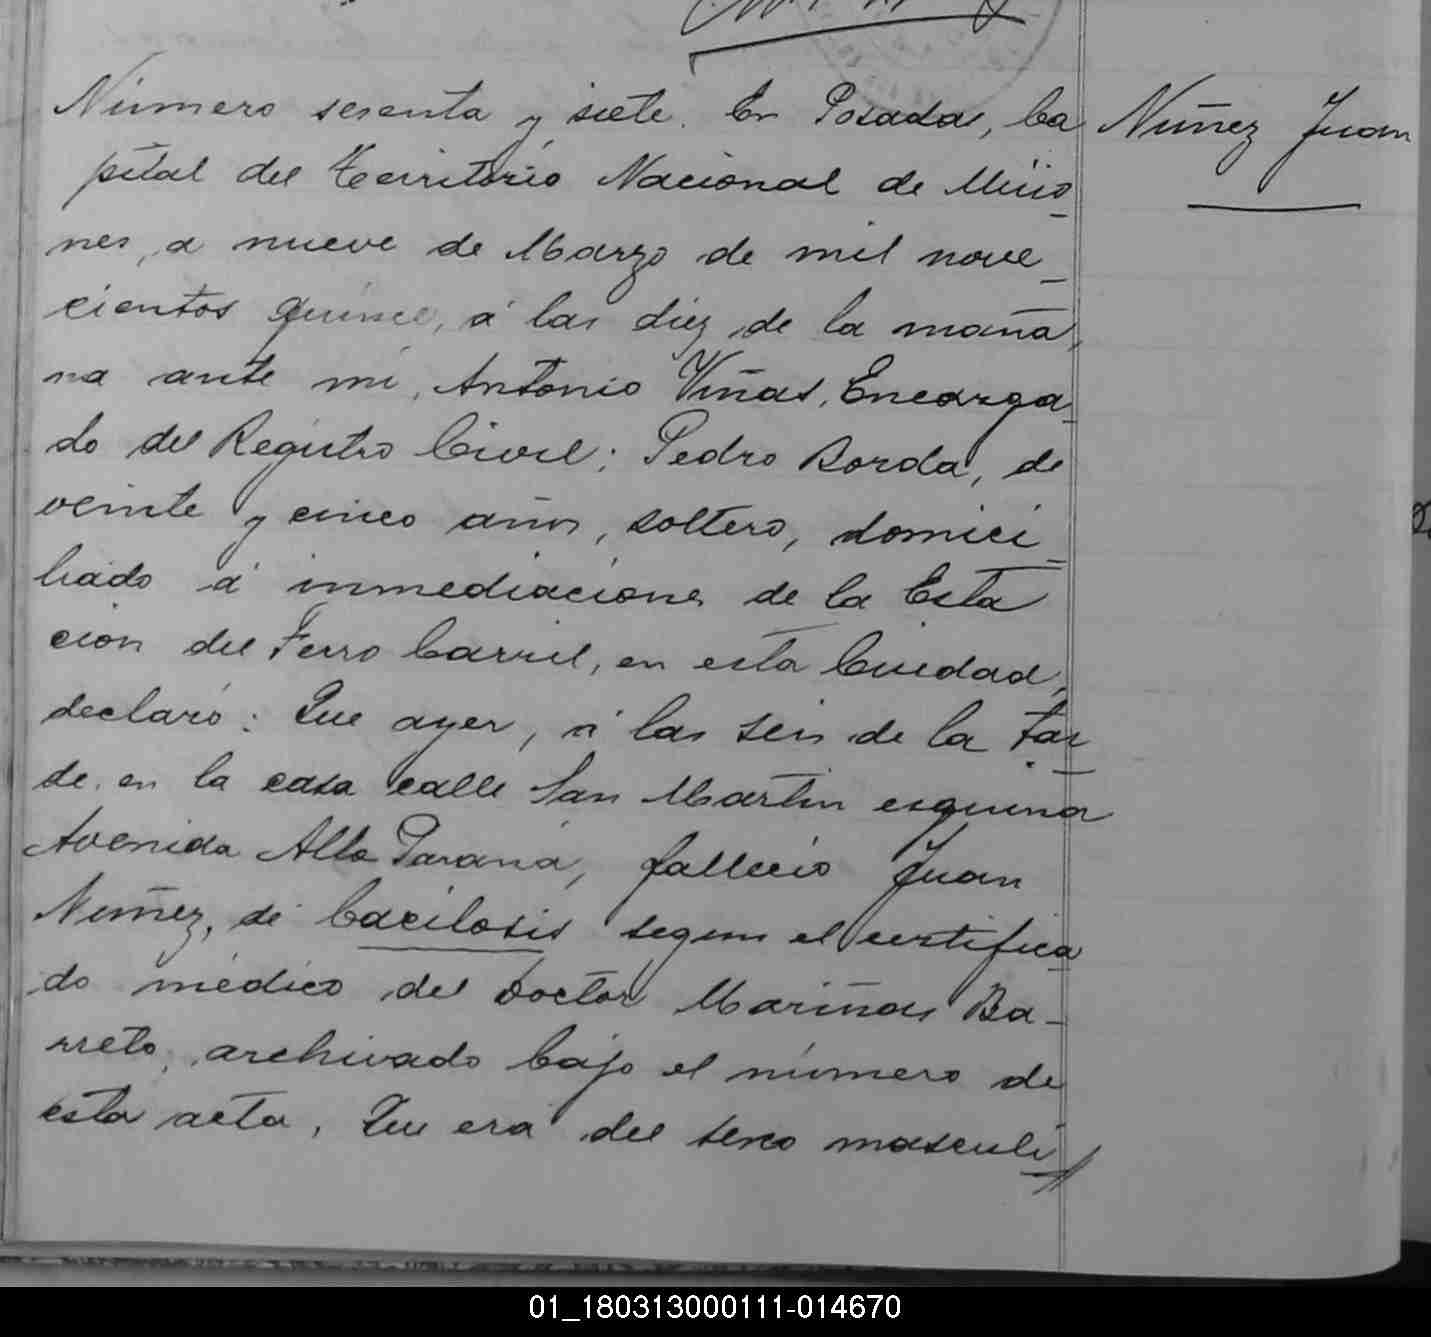 Número sesenta y siete. En Posadas, Ca
pital del Territorio Nacional de Misio_
nes, a nueve de Marzo de mil nove_
cientos quince, á las diez de la maña_
na ante mi, Antonio Viñas, Encarga_
do del Registro Civil; Pedro Borda, de
veinte y cinco años, soltero, domici_
liado á inmediaciones de la Esta
cion del Ferro Carril, en esta Ciudad,
declaró: Que ayer, á las seis de la tar_
de, en la casa calle San Martin esquina
Avenida Alto Paraná, falleció Juan
Nuñez, de bacilosis segun el certifica
do médico del Doctor Mariñas Ba_
rreto, archivado bajo el número de
esta acta, Que era del sexo masculi
Nuñez Juan
01_180313000111-014670